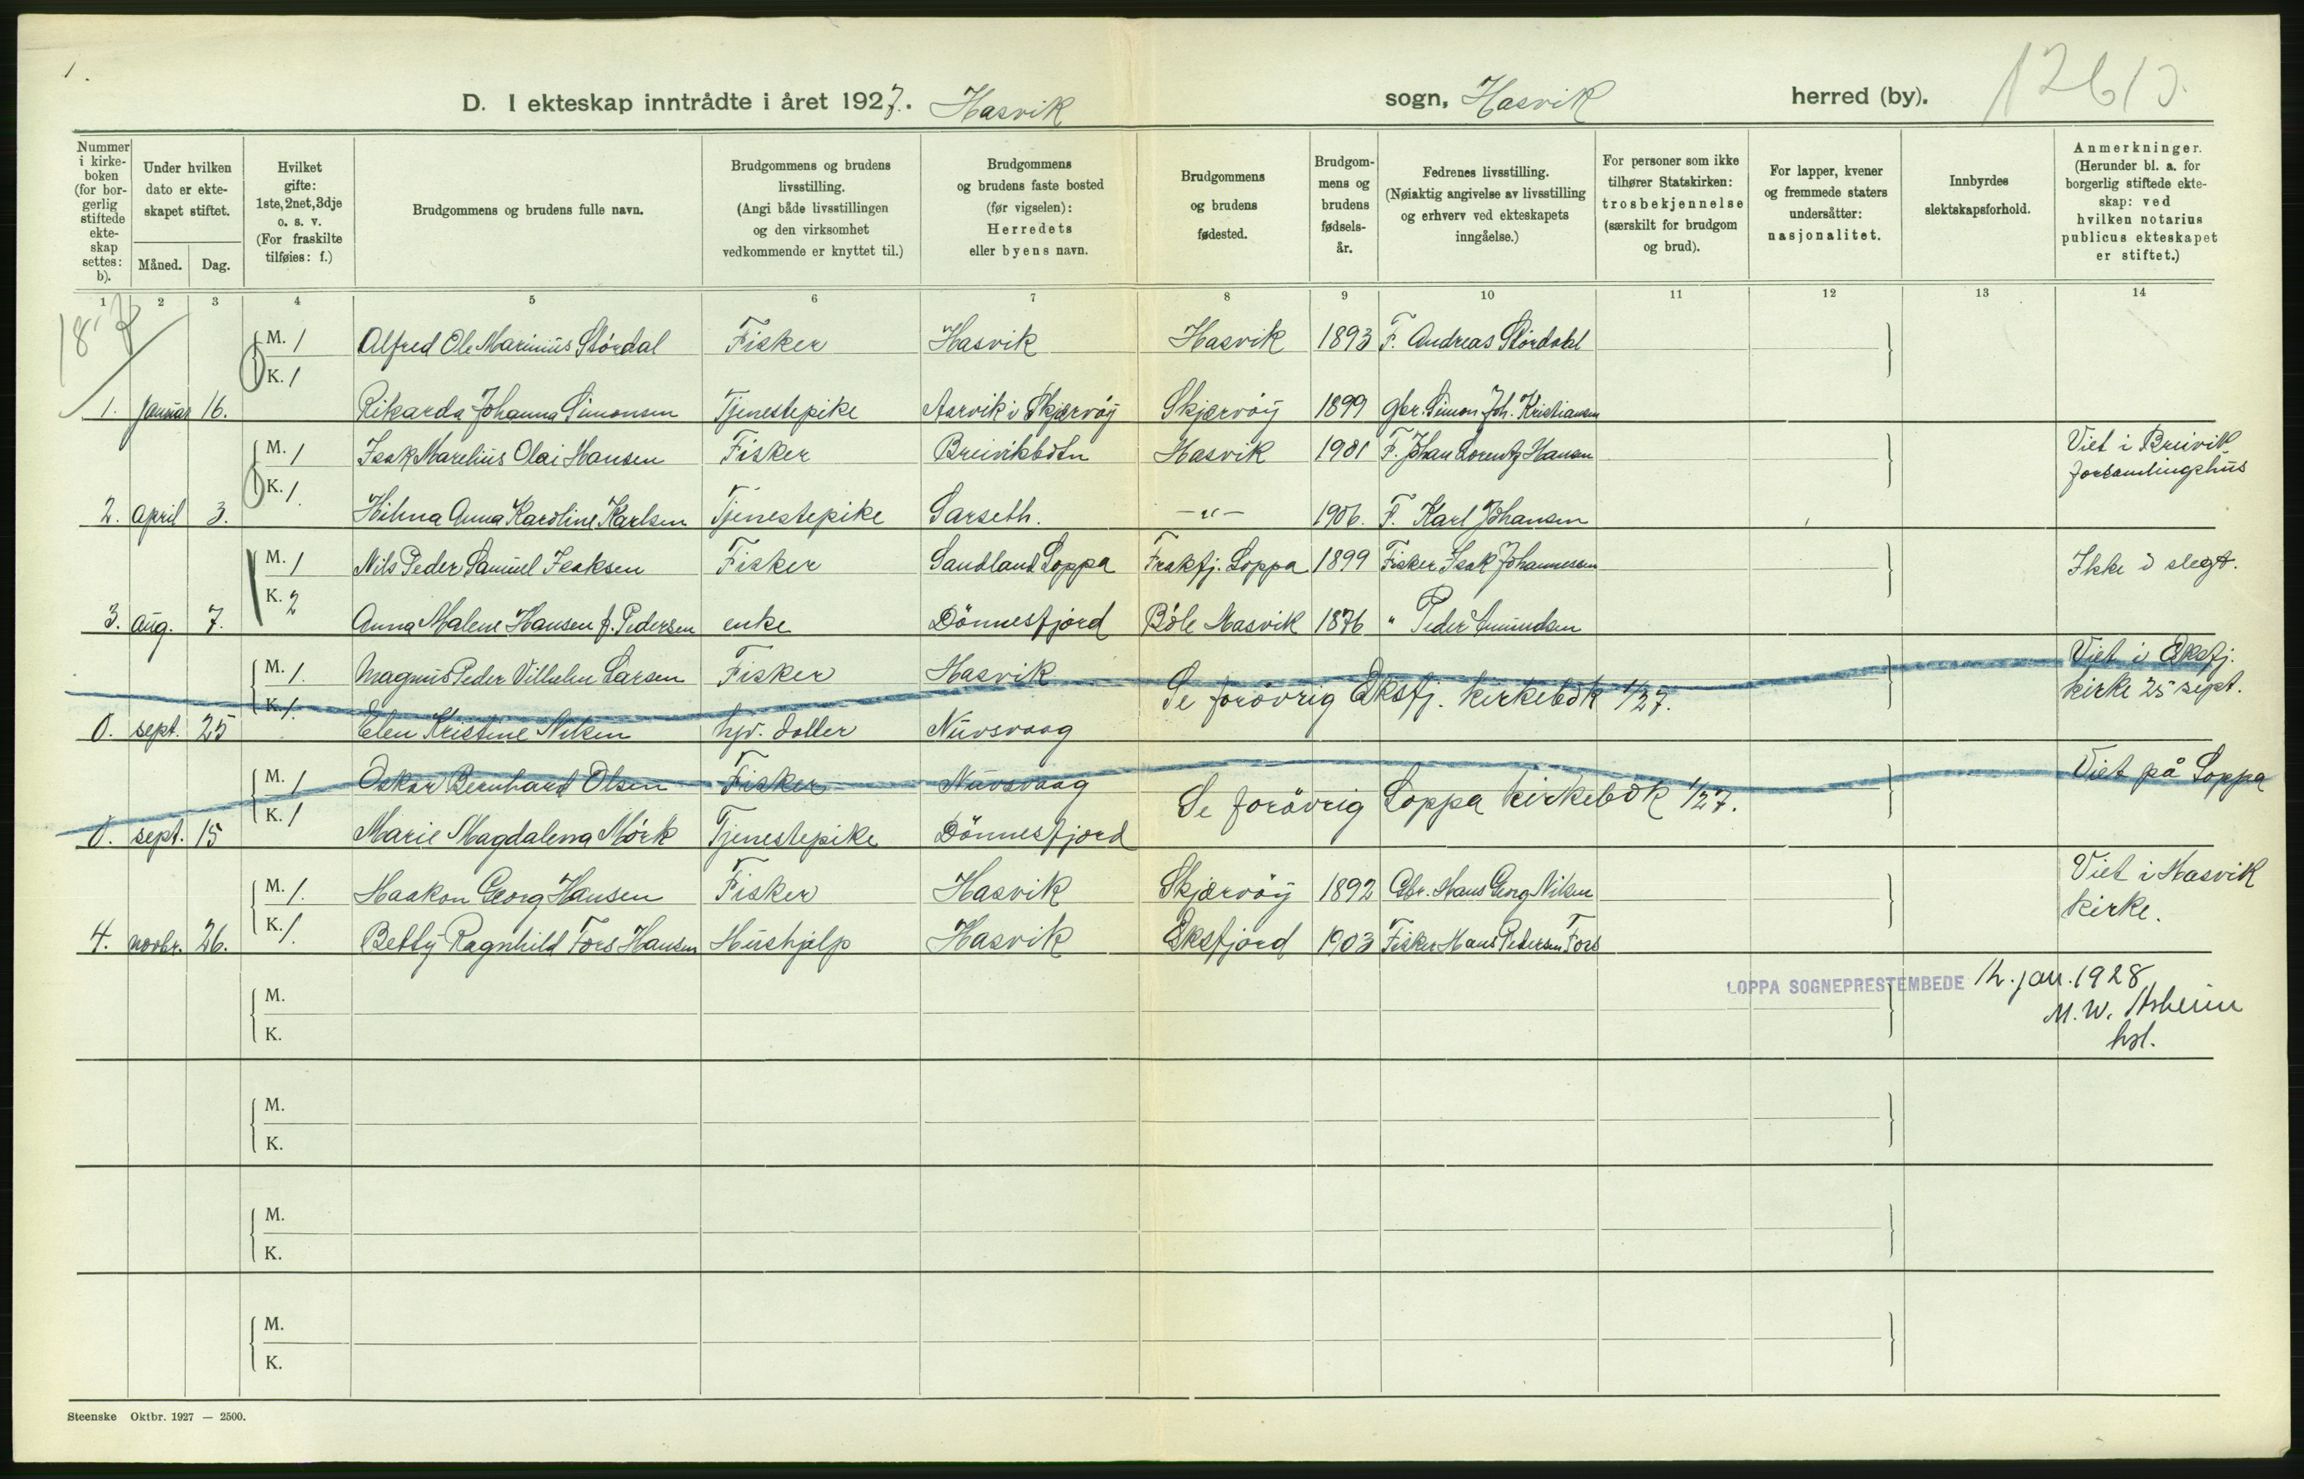 1.
D. I ekteskap inntrådte i året 1927. Hasvik sogn, Hasvik herred (by).
Nummer i kirke- boken (for bor- gerlig stiftede ekte- skap settes: b).
Under hvilken dato er ekte- skapet stiftet.
Måned. Dag.
Hvilket gifte: 1ste, 2net, 3dje o. s. v. (For fraskilte tilføies: f.)
Brudgommens og brudens fulle navn.
Brudgommens og brudens livsstilling. (Angi både livsstillingen og den virksomhet vedkommende er knyttet til.)
Brudgommens og brudens faste bosted (før vigselen): Herredets eller byens navn.
Brudgommens og brudens fødested.
Brudgom- mens og brudens fødsels- år.
Fedrenes livsstilling. (Nøiaktig angivelse av livsstilling og erhverv ved ekteskapets inngåelse.)
For personer som ikke tilhører Statskirken: trosbekjennelse (særskilt for brudgom og brud).
For lapper, kvener og fremmede staters undersåtter: nasjonalitet.
Innbyrdes slektskapsforhold.
Anmerkninger. (Herunder bl. a. for borgerlig stiftede ekte- skap: ved hvilken notarius publicus ekteskapet er stiftet.)
1 2 3 4 5 6 7 8 9 10 11 12 13 14
M. 1 Alfred Ole Marinius Stórdal Fisker Hasvik Hasvik 1893 F. Andreas Stórdahl
K. 1
1. januar 16. Rikarda Johanna Simonsen Tjenestepike Aarvik i Skjærvöy Skjærvöy 1899 gbr. Simon Joh. Kristiansen
M. 1 Isak Marelius Olai Hansen Fisker Breivikbotn Hasvik 1901 F. Johan Lorentz Hansen Viet i Breivik forsamlingshus
K. 1.
2. april 3. Hilma Anna Karoline Karlsen Tjenestepike Sarseth. -"- 1906. F. Karl Johansen
M. 1 Nils Peder Samuel Isaksen Fisker Sandland Loppa Frakfj. Loppa 1899 Fisker Isak Johannesen Ikke i slegt.
K. 2
3. aug. 7. Anna Malene Hansen f. Pedersen enke Dönnesfjord Böle Hasvik 1876 " Peder
M. 1. Magnus Peder Vilhelm Larsen Fisker Hasvik Se forövrig Øksfj. kirkebok 1/27. Viet i Øksfj. kirke 25 sept.
K. 1.
0. sept. 25 Elen Kristine Nilsen hjv. dotter Nuvsvaag
M. 1 Oskar Bernhard Olsen Fisker Nuvsvaag Se forövrig Loppa kirkebok 1/27. Viet på Loppa
K. 1
0. sept. 15 Marie Magdalena Mörk Tjenestepike Dönnesfjord
M. 1. Haakon Georg Hansen Fisker Hasvik Skjærvöy 1892 Gbr. Hans Georg Nilsen Viet i Hasvik kirke.
K. 1.
4. novbr. 26. Betty Ragnhild Fors Hansen Hushjelp Hasvik Øksfjord 1903 Fisker Hans Pedersen Fors
LOPPA SOGNEPRESTEMBEDE 12. jan. 1928
M. W.
hst.
M.
K.
M.
K.
M.
K.
M.
K.
Steenske Oktbr. 1927 — 2500.